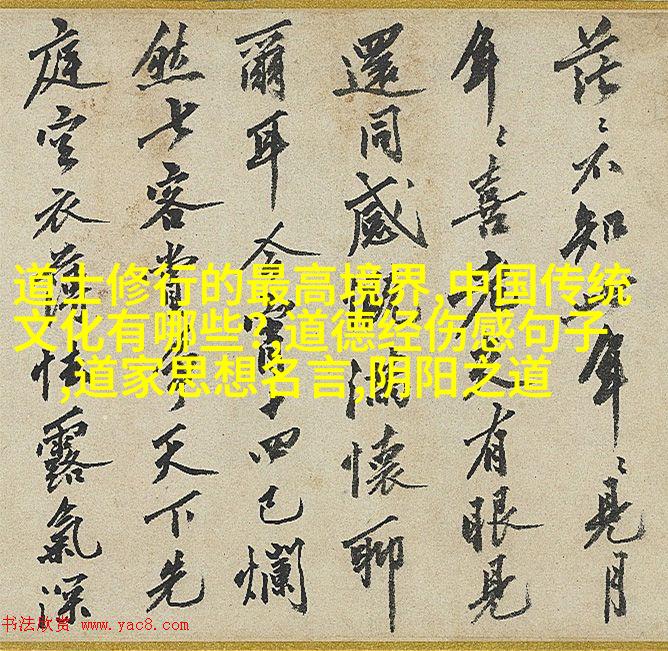 茫〻不知年〻見月
年〻喜老有眼見
還同感滿懷聊
爾耳今宵十四已爛
然七客賞天下先
庭空衣薄怯露氣深
道士修行的最高境界,中国传统
文化有哪些？道德经伤感句子
,道家思想名言,阴阳之道
书法欣赏 www.yac8.com